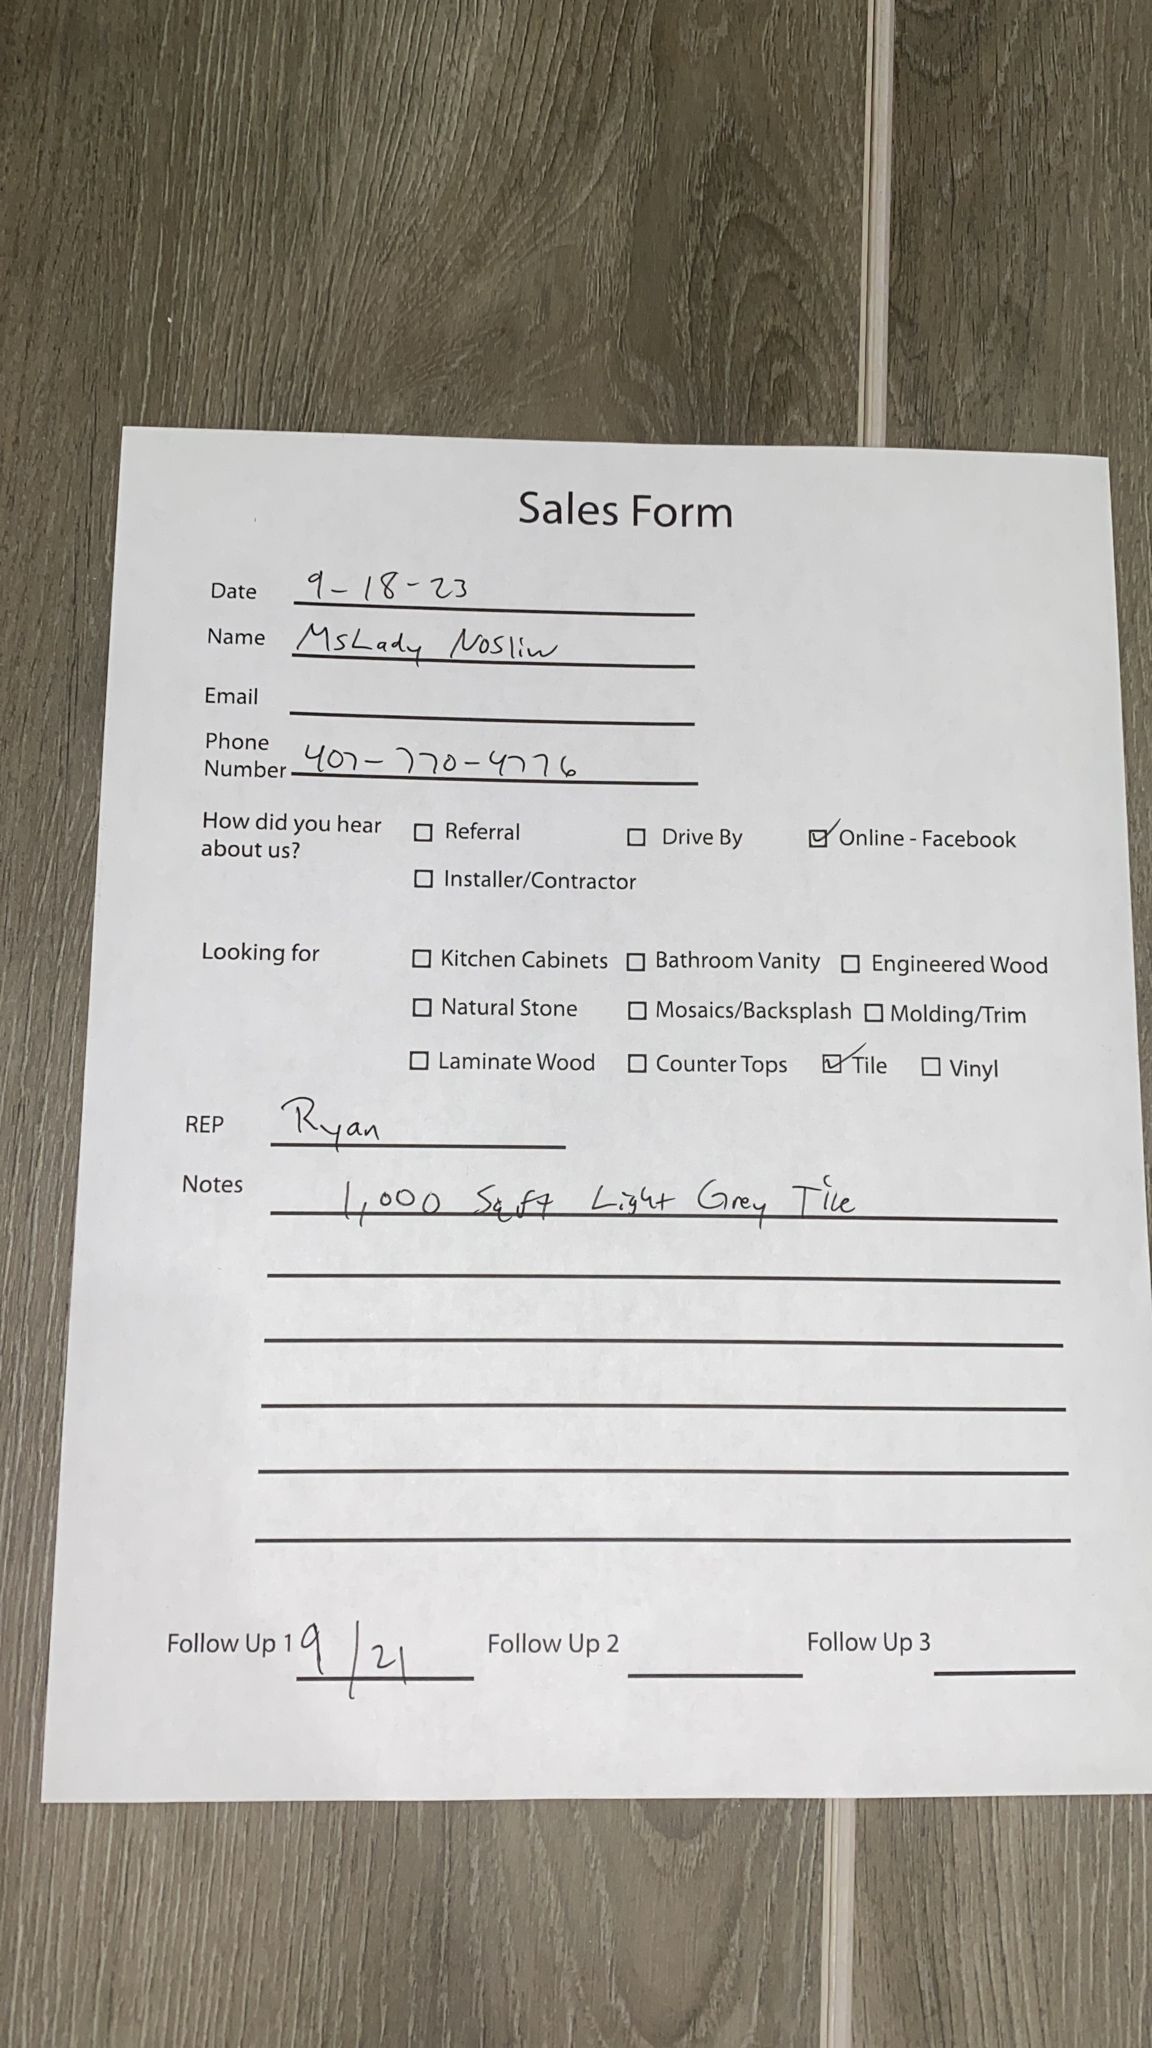 Sales Form
Date 9-18-23
Name MsLady Nosliw
Email
Phone Number 407-770-4776
How did you hear about us? ☐ Referral ☐ Drive By ☑ Online - Facebook
☐ Installer/Contractor
Looking for ☐ Kitchen Cabinets ☐ Bathroom Vanity ☐ Engineered Wood
☐ Natural Stone ☐ Mosaics/Backsplash ☐ Molding/Trim
☐ Laminate Wood ☐ Counter Tops ☑ Tile ☐ Vinyl
REP Ryan
Notes 1,000 Sqft Light Grey Tile
Follow Up 1 9/21 Follow Up 2 Follow Up 3